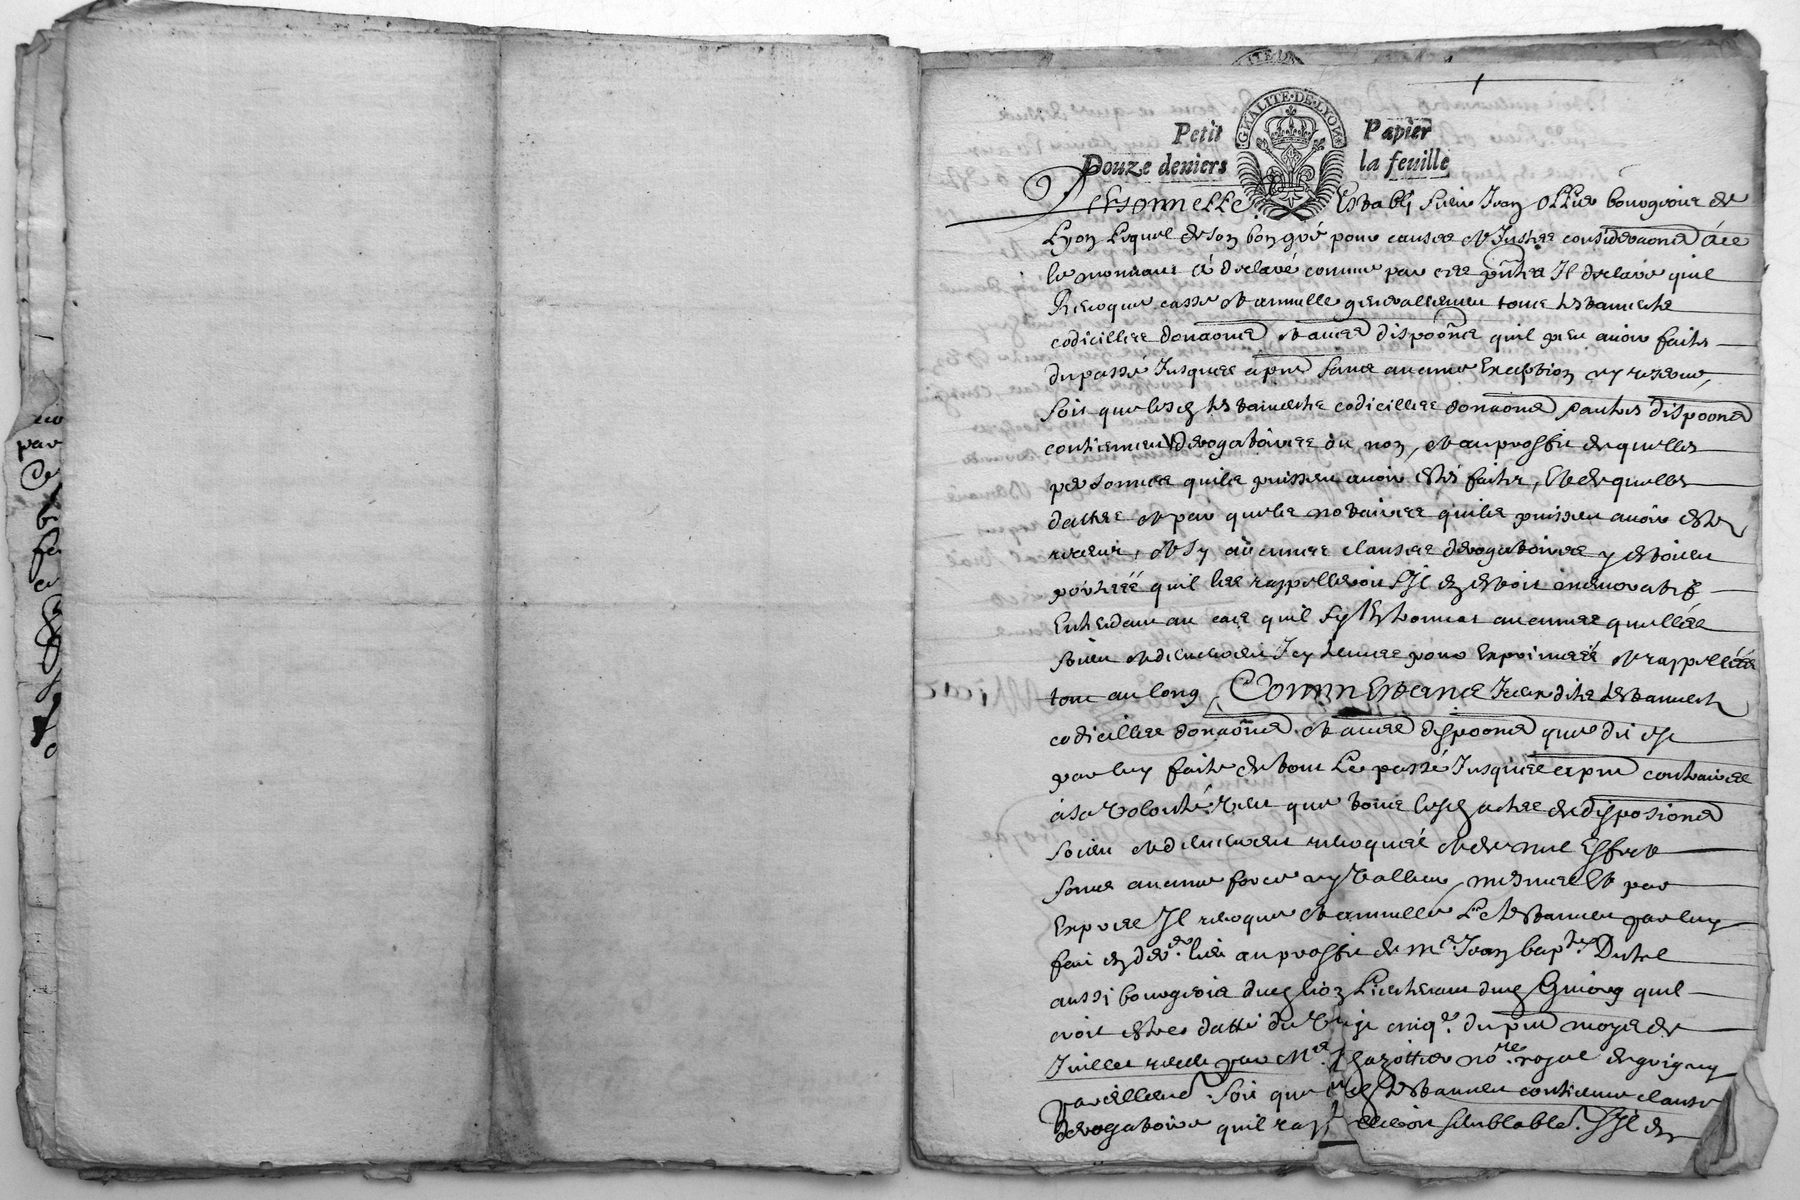 GNALITE·DE·LYON
Petit Papier
Douze deniers la feuille
Personnelle Establi sieur Jean Ollier bourgeois de
Lyon Lequel de son bon gré pour causes et Justes considéraons à ce
le mouvant a declaré comme par ces pntes Il declaire quil
Revoque casse et annulle generallement tous testaments
codicilles donaons et autres dispoons quil peu avoir faits
du passé Jusques a pnt sans aucune Exception ny reserve,
soit que lesd testaments codicilles donaons & autres dispoons
contiennent derogatoires ou non, et au proffit de quelles
personnes quils puissent avoir estés faits, et de quelles
dattes et par quels notaires quils puissent avoir estes
receus, et sy aucunes clauses derogatoires y estoient
quil les rappelleroit sil en estoit memoratif
Entendant au cas quil sy trouvat aucunes quelles
soient et demeurent Icy tenues pour Exprimées et rappellées
tout au long, Comm Estans Iceux dits testaments
codicilles donaons et autres dispoons que dit est
par luy faits de tout Le passé Jusques a pnt contraires
à sa volonté veut que tous lesd actes de disposions
soient et demeurent revoqués et de nul Effect
sans aucune force ny valleur, mesmes et par
Exprès Il revoque et annulle Le testament par luy
fait en dernier lieu au proffit de Mr Jean bapte Dutel
aussi bourgeois dud lion Lieutenant dud quil
croit estre datté du vingt cinqe du pnt moys de
Juillet receu par Me gazottier nore royal de grigny
soit que led testament contienne clause
derogatoire quil rappelleroit semblable. Sil en